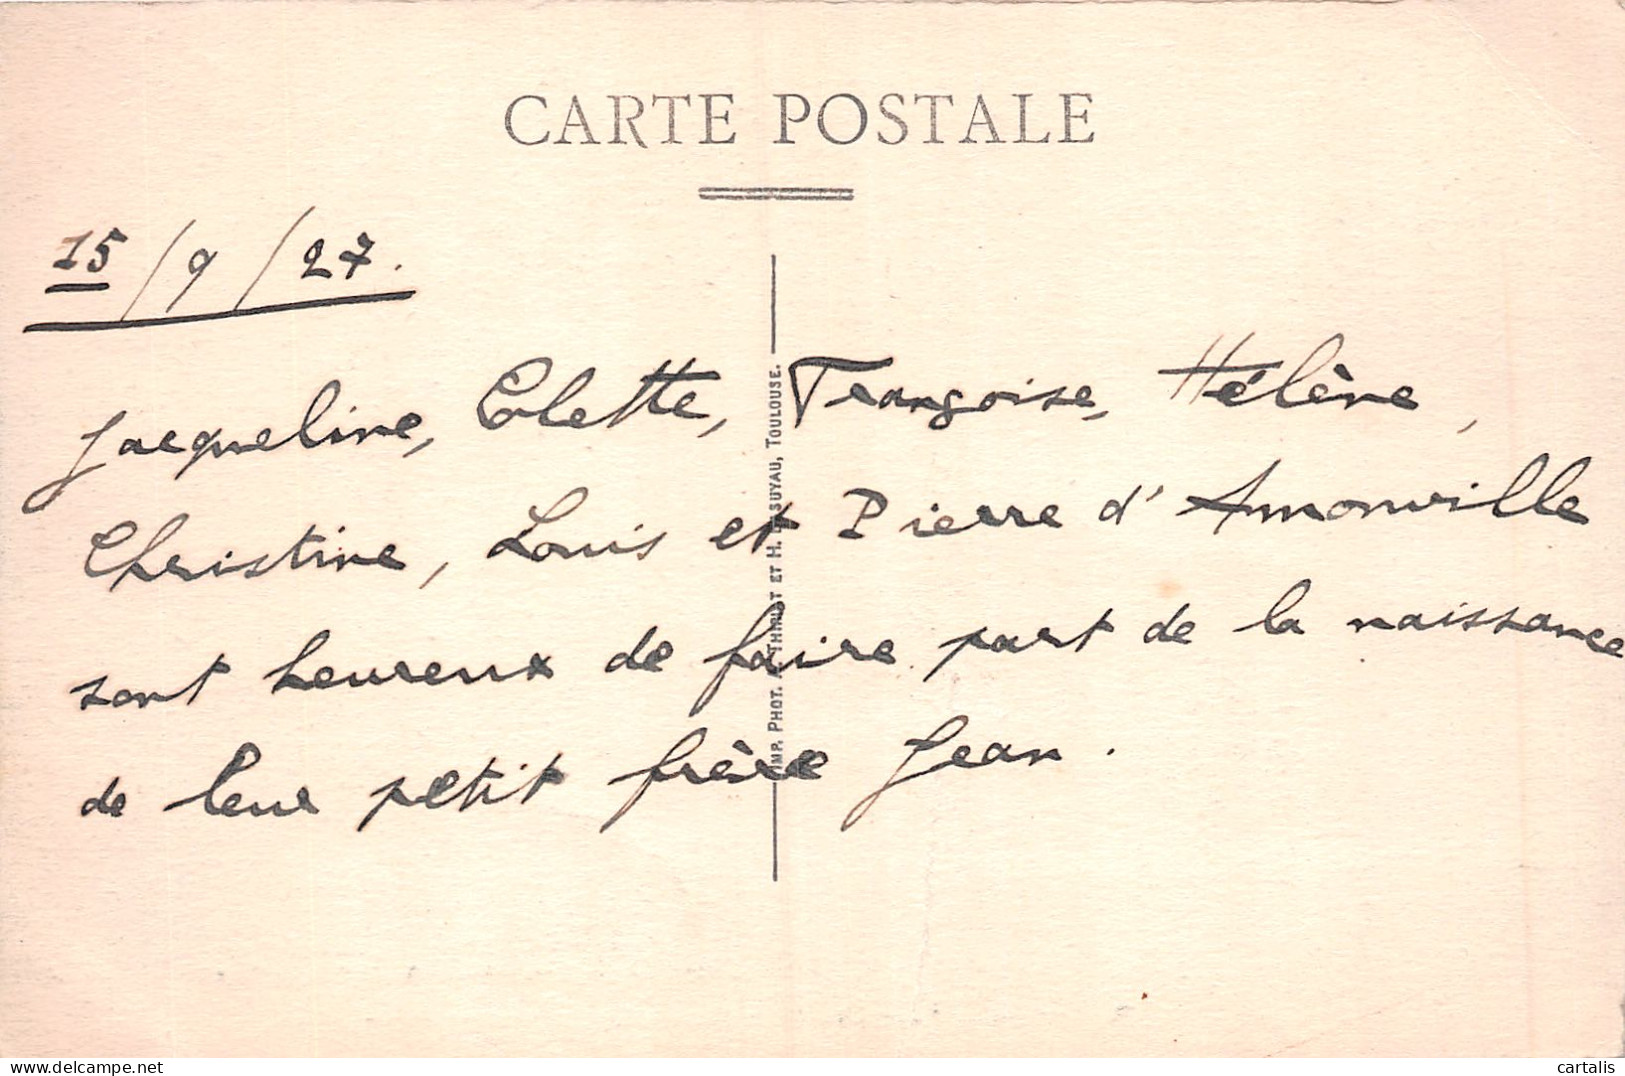 CARTE POSTALE
15/9/27.
Jacqueline, Colette, Françoise, Hélène,
Christine, Louis et Pierre d'Amonville
sont heureux de faire part de la naissance
de leur petit frère Jean.
IMP. PHOT. A. THIRIAT ET H. BASUYAU, TOULOUSE.
cartalis